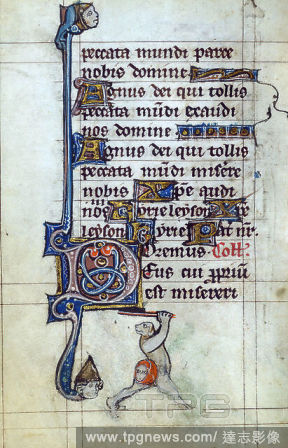 peccata mundi parce
nobis domine
Agnus dei qui tollis
peccata mūdi exaudi
nos domine
Agnus dei qui tollis
peccata mūdi misere
nobis Xpe audi
nos Kyrieleyson Xpe
leyson Kyriel Pat nr
Oremus Coll
Deus cui propriū
est misereri
TPG
www.tpgnews.com / 達志影像